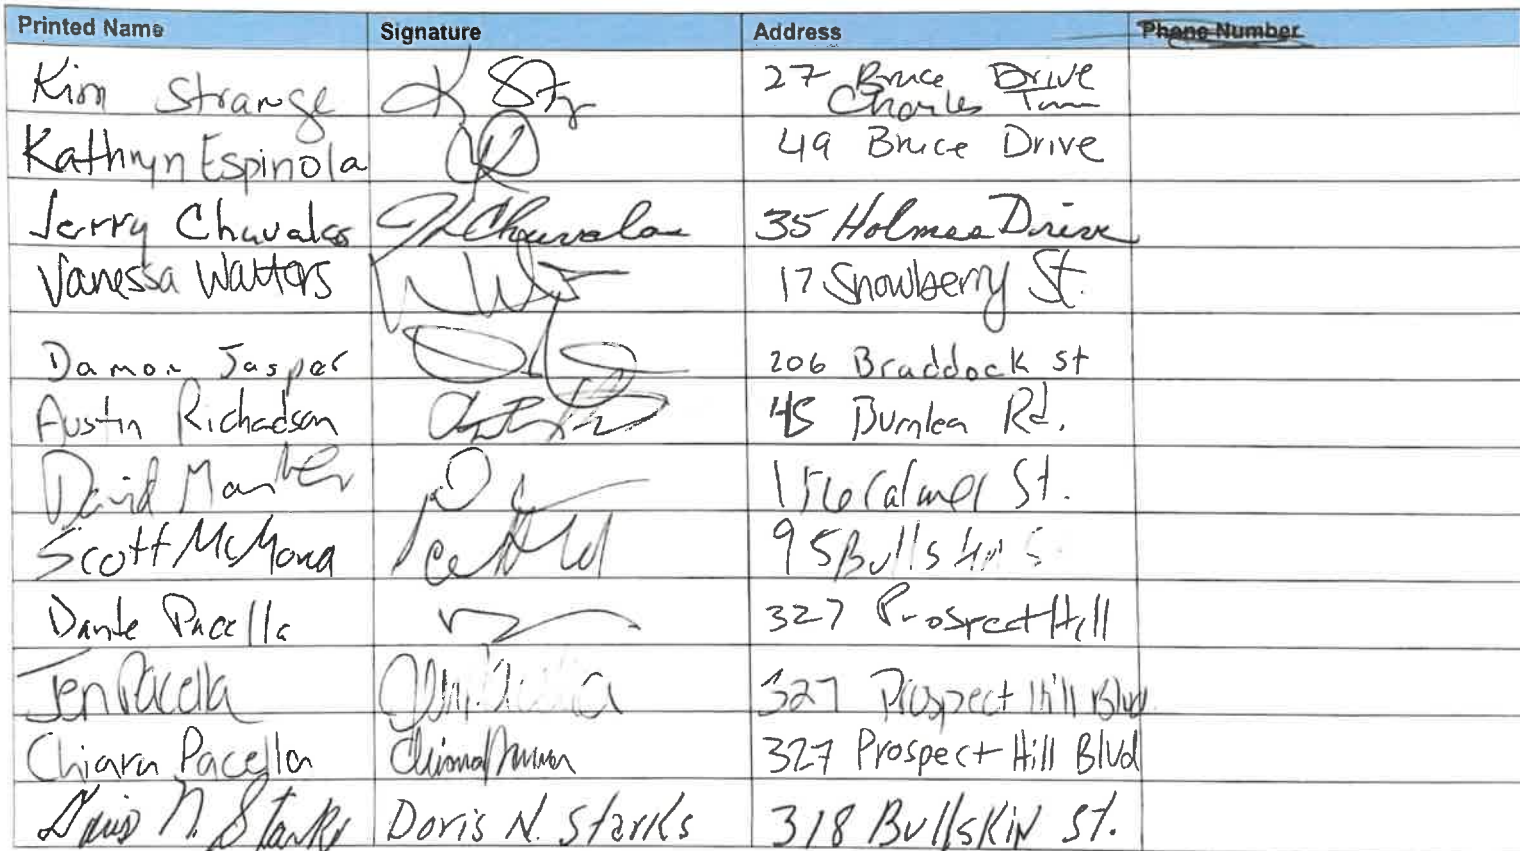 Printed Name Signature Address Phone Number
Kim Strange K Stg 27 Bruce Drive
Charles Town
Kathryn Espinola 49 Bruce Drive
Jerry Chuvalas J Chuvalas 35 Holmes Drive
Vanessa Watters 17 Snowberry St.
Damon Jasper 206 Braddock St
Austin Richadson 45 Bumlea Rd.
David 156 St.
Scott 95 Bulls
Dante Pacella 327 Prospect Hill
Jen Pacella Jen Pacella 327 Prospect Hill Blvd
Chiara Pacella Chiara 327 Prospect Hill Blvd
Doris N. Starks Doris N. Starks 318 BullsKiN St.